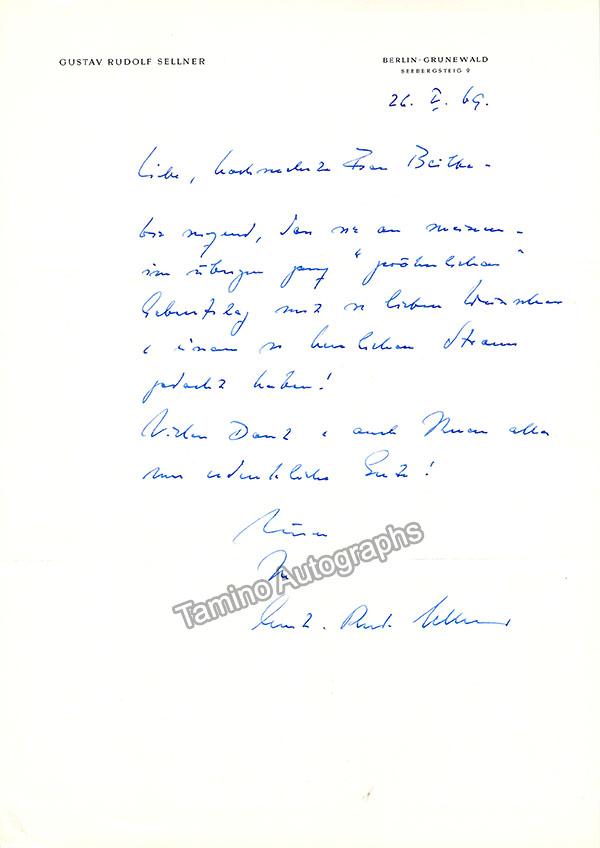 GUSTAV RUDOLF SELLNER
BERLIN-GRUNEWALD
SEEBERGSTEIG 9
26. V. 69.
Liebe, hochverehrte Frau
daß Sie an meinem -
im übrigen ganz "gewöhnlichen"
Geburtstag mit so lieben Wünschen
& einem so herrlichen Strauss
gedacht haben!
Vielen Dank & auch Ihnen alles
nur erdenkliche Gute!
Ihr
Gust. Rud. Sellner
Tamino Autographs